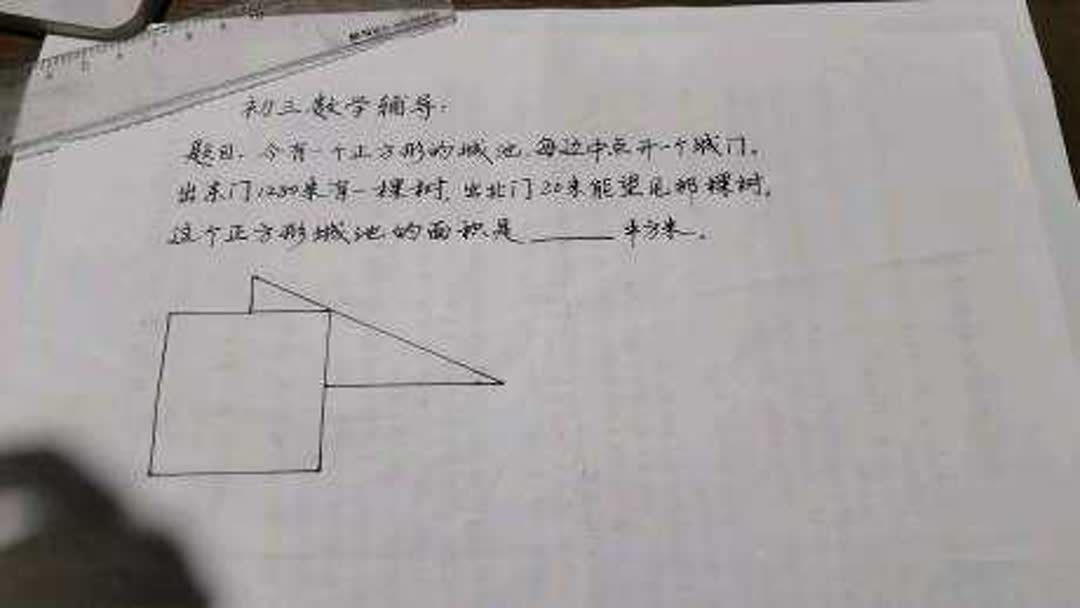 初三数学辅导:
题目. 今有一个正方形的城池, 每边中点开一个城门,
出东门1280米有一棵树, 出北门20米能望见那棵树,
这个正方形城池的面积是______平方米.